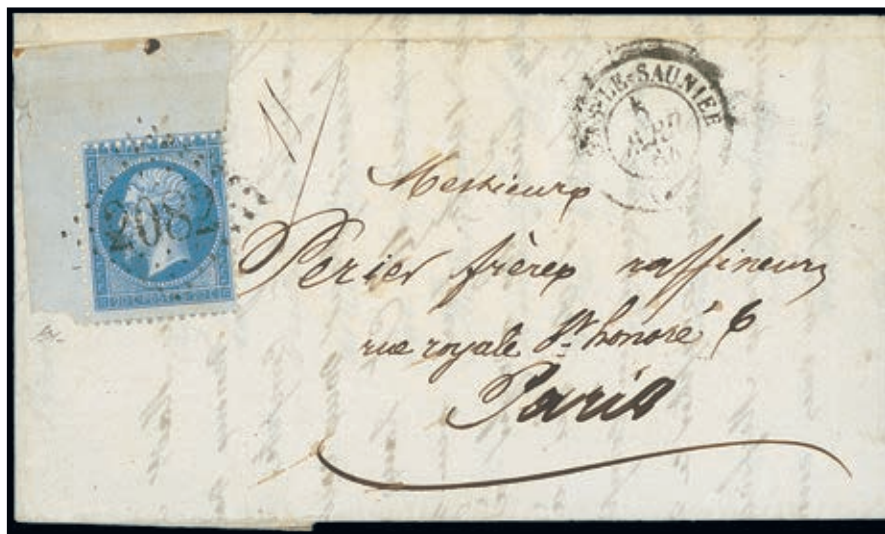 LE-SAUNIER
5
2082
11
Messieurs
Perier frères raffineurs
rue royale St honoré 6
Paris